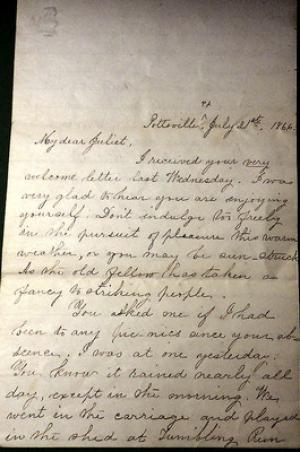 Pottsville, July 21st, 1864.
My dear Juliet,
I received your very
welcome letter last Wednesday. I was
very glad to hear you are enjoying
yourself. Don't indulge too freely
in the pursuit of pleasure this warm
weather, or you may be sun-struck
As the old fellow has taken a
fancy to striking people.
You asked me if I had
been to any pic-nics since your ab-
scence; I was at one yesterday.
You know it rained nearly all
day, except in the morning. We
went in the carriage and played
in the shed at Tumbling Run